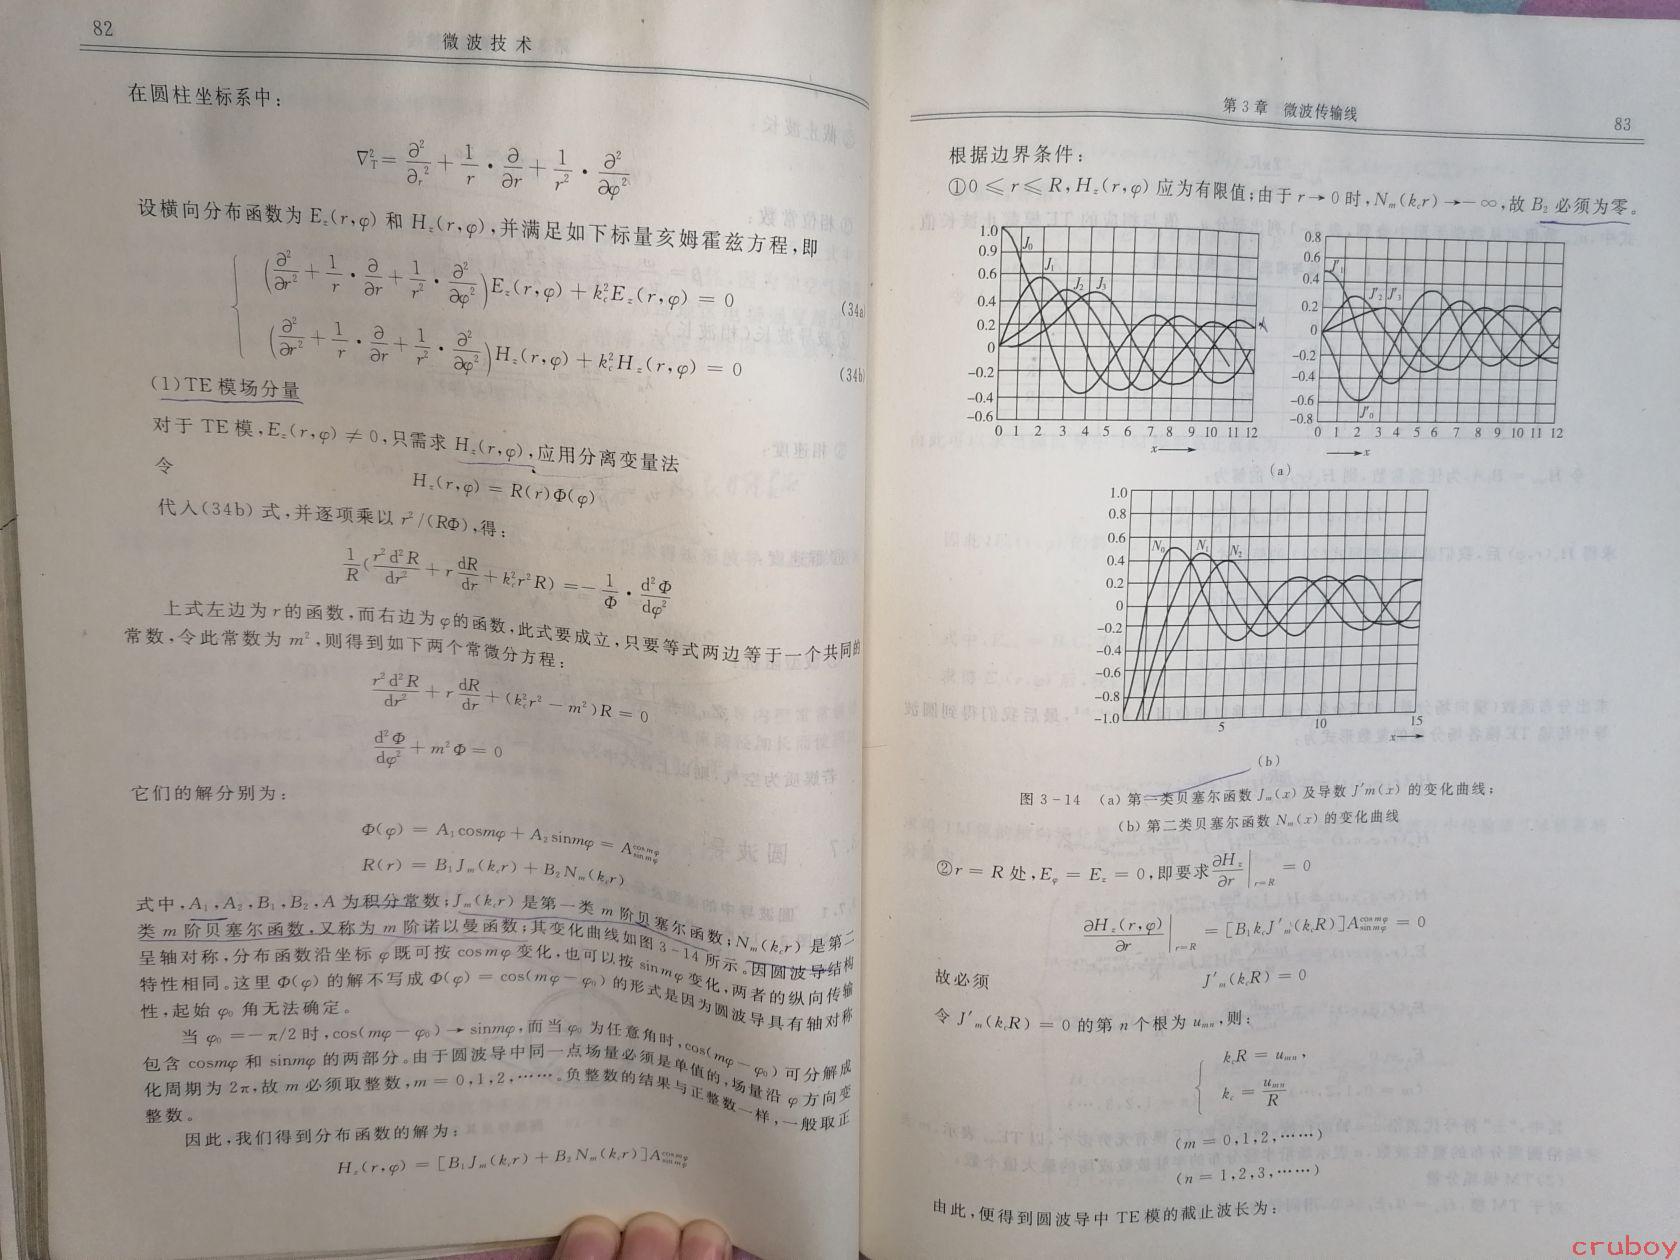 82
微波技术
在圆柱坐标系中:
∇²_T = ∂²/∂_r² + 1/r · ∂/∂r + 1/r² · ∂²/∂φ²
设横向分布函数为 E_z(r,φ) 和 H_z(r,φ),并满足如下标量亥姆霍兹方程,即
(∂²/∂r² + 1/r · ∂/∂r + 1/r² · ∂²/∂φ²)E_z(r,φ) + k_c²E_z(r,φ) = 0 (34a)
(∂²/∂r² + 1/r · ∂/∂r + 1/r² · ∂²/∂φ²)H_z(r,φ) + k_c²H_z(r,φ) = 0 (34b)
(1)TE 模场分量
对于 TE 模,E_z(r,φ) ≠ 0,只需求 H_z(r,φ),应用分离变量法
令
H_z(r,φ) = R(r)Φ(φ)
代入(34b) 式,并逐项乘以 r²/(RΦ),得:
1/R(r²d²R/dr² + r dR/dr + k_c²r²R) = −1/Φ · d²Φ/dφ²
上式左边为 r 的函数,而右边为 φ 的函数,此式要成立,只要等式两边等于一个共同的
常数,令此常数为 m²,则得到如下两个常微分方程:
r²d²R/dr² + r dR/dr + (k_c²r² − m²)R = 0
d²Φ/dφ² + m²Φ = 0
它们的解分别为:
Φ(φ) = A₁cosmφ + A₂sinmφ = A cosmφ sinmφ
R(r) = B₁J_m(k_cr) + B₂N_m(k_cr)
式中,A₁,A₂,B₁,B₂,A 为积分常数;J_m(k_cr) 是第一类 m 阶贝塞尔函数;N_m(k_cr) 是第二
类 m 阶贝塞尔函数,又称为 m 阶诺以曼函数;其变化曲线如图 3-14 所示。因圆波导结构
呈轴对称,分布函数沿坐标 φ 既可按 cosmφ 变化,也可以按 sinmφ 变化,两者的纵向传输
特性相同。这里 Φ(φ) 的解不写成 Φ(φ) = cos(mφ − φ₀) 的形式是因为圆波导具有轴对称
性,起始 φ₀ 角无法确定。
当 φ₀ = − π/2 时,cos(mφ − φ₀) → sinmφ,而当 φ₀ 为任意角时,cos(mφ − φ₀) 可分解成
包含 cosmφ 和 sinmφ 的两部分。由于圆波导中同一点场量必须是单值的,场量沿 φ 方向变
化周期为 2π,故 m 必须取整数,m = 0,1,2,……。负整数的结果与正整数一样,一般取正
整数。
因此,我们得到分布函数的解为:
H_z(r,φ) = [B₁J_m(k_cr) + B₂N_m(k_cr)]A cosmφ sinmφ
第 3 章 微波传输线
83
根据边界条件:
①0 ≤ r ≤ R,H_z(r,φ) 应为有限值;由于 r → 0 时,N_m(k_cr) → − ∞,故 B₂ 必须为零。
1.0 0.9 0.6 0.4 0.2 0 −0.2 −0.4 −0.6
J₀ J₁ J₂ J₃
0 1 2 3 4 5 6 7 8 9 10 11 12
x→
0.8 0.6 0.4 0.2 0 −0.2 −0.4 −0.6 −0.8
J'₁ J'₂ J'₃ J'₀
0 1 2 3 4 5 6 7 8 9 10 11 12
x→
(a)
1.0 0.8 0.6 0.4 0.2 0 −0.2 −0.4 −0.6 −0.8 −1.0
N₀ N₁ N₂
5 10 15
x→
(b)
图 3-14 (a) 第一类贝塞尔函数 J_m(x) 及导数 J'm(x) 的变化曲线;
(b) 第二类贝塞尔函数 N_m(x) 的变化曲线
②r = R 处,E_φ = E_z = 0,即要求 ∂H_z/∂r |_{r=R} = 0
∂H_z(r,φ)/∂r |_{r=R} = [B₁k_cJ'_m(k_cR)]A cosmφ sinmφ = 0
故必须
J'_m(k_cR) = 0
令 J'_m(k_cR) = 0 的第 n 个根为 u_mn,则:
k_cR = u_mn,
k_c = u_mn/R
(m = 0,1,2,……)
(n = 1,2,3,……)
由此,便得到圆波导中 TE 模的截止波长为:
cruboy